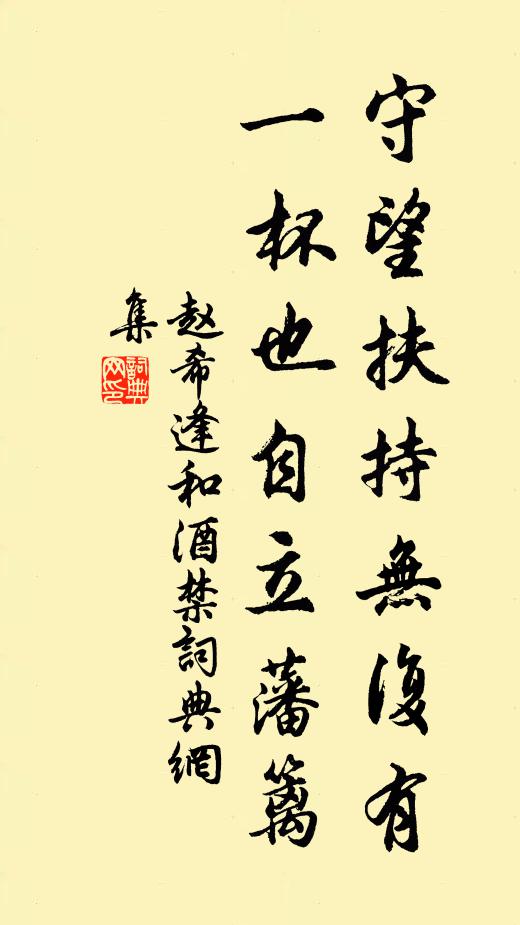 守望扶持無復有
一杯也自立藩籬
赵希逢和酒禁詞典網
集
詞典
网印